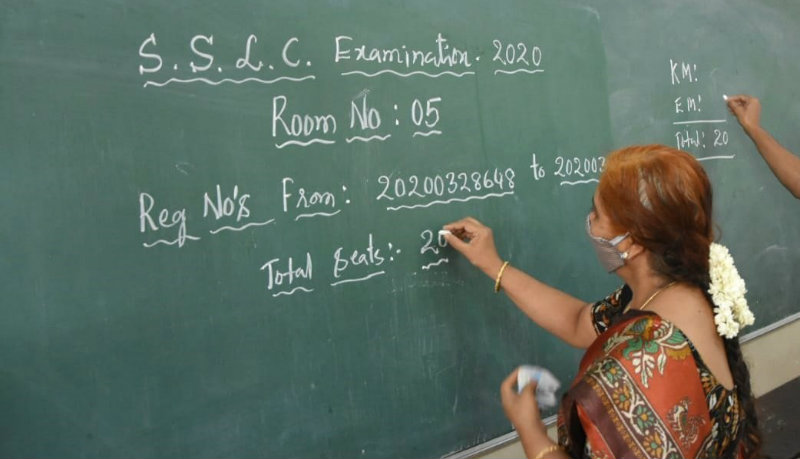 S.S.L.C. Examination. 2020
Room No : 05
Reg No's From: 20200328648 to 202003
Total Seats:- 20
KM:
EM:
Total: 20